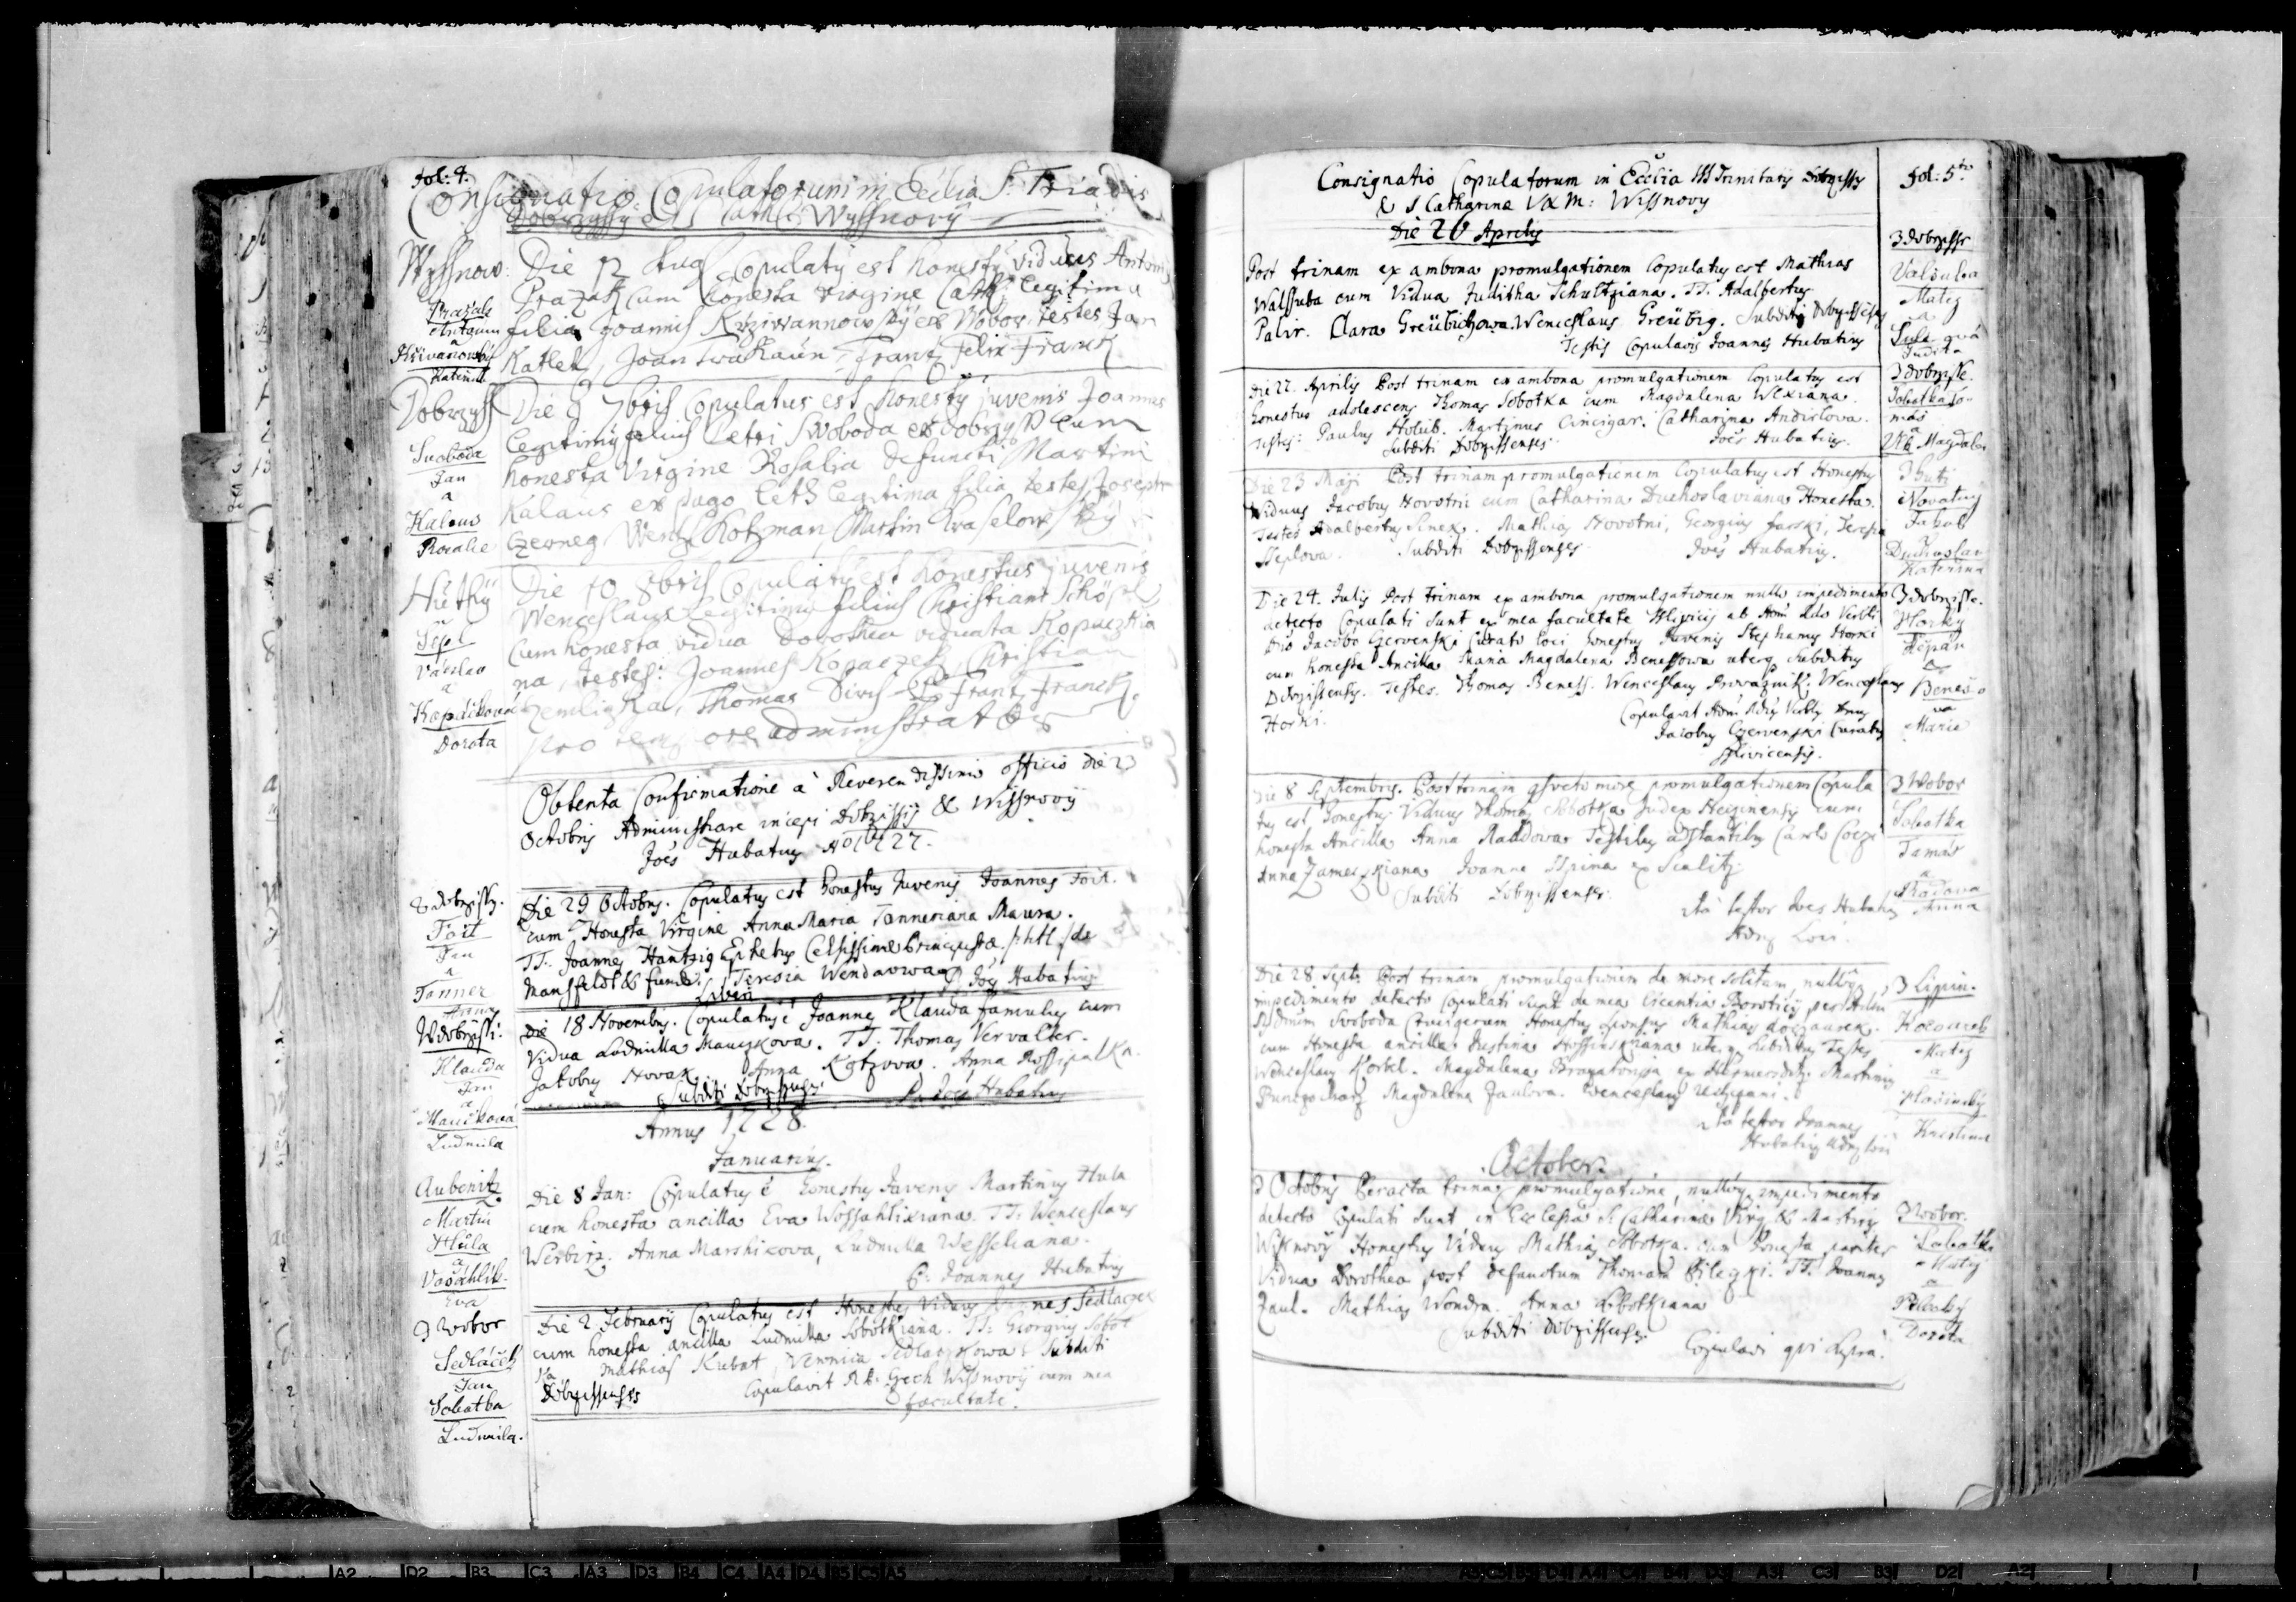 Fol: 4.
Consignatio Copulatorum in Ecclia S: Triadis
Dobrzyssy et S Cath: Wyssnovy
Wyssnow:
Pražák
Antonín
a
Křivanovský
Kateřina
Die 12 Aug Copulaty est honesty viduus Antoniy
Prazak cum honesta virgine Cath: legitima
filia Joannis Krziwannowsky ex Wobor, testes Jan
Katlek, Joan Franz Felix Franck
Dobrzyss
Svoboda
Jan
a
Kalaus
Rosalie
Die 9 7bris Copulatus est honesty juvenis Joannes
legitimy filius Petri Swoboda ex dobrzyss cum
honesta Virgine Rosalia defuncti Martini
Kalaus ex pago leth legitima filia testes Joseph
Czerneg Wentz Kotzman Martin
Huthy
Šépl
Václav
a
Kopáčková
Dorota
Die 10 8bris Copulaty est honestus juvenis
Wenceslaus legitimy filius Christiani Schöpl
cum honesta vidua Dorothea viduata Kopaczkia
na, testes: Joannes Kopaczek, Christian
zemliczka, Thomas Divis P Frantz Franck.
pro tempore administrator
Obtenta Confirmatione à Reverendissimo officio die 23
Octobris Administrare incepi Dobrzissij & Wissnovij
Joës Hubatius Ao 1727.
2 dobrzissy.
Fořt
Jan
a
Tanner
Anna
Die 29 Octobris. Copulaty est honestus Juvenis Joannes Foit.
cum Honesta Virgine Anna Maria Tanneriana Maura.
TT. Joannes Hantzig Celsissimae Principissae de
Mansfeldt & fundi. Teresia Wendauwa Joës Hubatius
Wdobrzissi:
Klauda
Jan
a
Maučková
Ludmila
Die 18 Novembris. Copulatus ē Joannes Klauda famulus cum
Vidua Ludmilla Mauczkova. TT. Thomas Vervalter.
Jakobus Novak. Anna Kotzova. Anna Rossipalka.
Subditi Dobrzissenses. P. Joës Hubatius
Annus 1728.
Januarius.
Aubenitz
Martin
Hůla
a
Vosáhlík
Eva
Die 8 Jan: Copulatus ē honestus Juvenis Martinus Hula
cum honesta ancilla Eva Wossahlikiana. TT. Wenceslaus
Werbirz. Anna Marshikova, Ludmilla Wesseliana.
P: Joannes Hubatius
Wobor
Sedláček
Jan
Sobotka
Ludmila.
Die 2 February Copulatus est Honestus Viduus Joannes Sedlaczek
cum honesta ancilla Ludmilla Sobotkiana. TT: Georgius Sobot
ka Mathias Kubat, Veronica Sedlaczkowa Subditi
Dobrzissenses Copulavit Rd: Czech Wissnovij cum mea
facultate.
Consignatio Copulatorum in Ecclia SSS Trinitatis Dobrzissy
& S Catharinae V & M: Wissnovy
Fol: 5to
Die 20 Aprilis
Post trinam ex ambona promulgationem Copulatus est Mathias
Walssuba cum Vidua Juditha Schultziana. TT. Adalbertus
Palir. Clara Greübichowa Wenceslaus Greübig. Subditi Dobrzissenses
Testis Copulavi Joannes Hubatius
Z dobrzissy
Valšuba
Matěj
a
Judita
Die 22. Aprilis Post trinam ex ambona promulgationem Copulatus est
honestus adolescens Thomas Sobotka cum Magdalena Wlkiana.
Testes: Paulus Holub. Martinus Cincigar. Catharina Andirlova.
Subditi Dobrzissenses. Joës Hubatius.
Z dobrzisse.
Sobotka To-
máš
a
Vlk. Magdalen
Die 23 Maji Post trinam promulgationem Copulatus est Honestus
Viduus Jacobus Novotni cum Catharina Duchoslaviana Honesta.
Testes Adalbertus Simek. Mathias Novotni, Georgius Jarski, Teresia
Sseplova. Subditi Dobrzissenses. Joës Hubatius.
Z Huti
Novotný
Jakub
Duchoslav
Kateřina
Die 24. Julij Post trinam ex ambona promulgationem nullo impedimento
detecto Copulati sunt ex mea facultate Slivicij ab Adm Rdo Verbli
Dno Jacobo Czervenski Curato loci honestus Juvenis Stephanus Horki
cum honesta Ancilla Maria Magdalena Benessowa uterq Subditus
Dobrzissensis. Testes. Thomas Beness. Wenceslaus Provaznik. Wenceslaus
Horki. Copulavit Adm Rdus Verblis Dnus
Jacobus Czervenski Curatus
Slivicensis.
Z dobrzisse.
Horký
Štěpán
a
Benešo
va
Marie
Die 8 Septembris. Post trinam consveto more promulgationem Copula
tus est honestus Viduus Thomas Sobotka Judex Neczinensis cum
honesta Ancilla Anna Raddowa Testibus adstantibus Carolo
Anna Zameczkiana Joanne ex
Subditi Dobrzissenses.
Ita testor Joës Hubatius
Admr Loci.
Z Wobor
Sobotka
Tomáš
a
Radova
Anna
Die 28. Septs Post trinam promulgationem de more solitam, nulloq
impedimento detecto Copulati sunt de mea licentia Boroticij per Adm
Rdum Svoboda Crucigerum Honestus sponsus Mathias Koczaurek.
cum Honesta ancilla Justina Hossinskiana uterq Subditus Testes
Wenceslaus Korbel. Magdalena Martinus
Magdalena Paulova. Wenceslaus
Ita testor Joannes
Hubatius Adm loci
Z Lipin.
Kocourek
Matěj
a
Hošinský
Kristina
October.
3 Octobris Peracta trina promulgatione, nulloq impedimento
detecto Copulati sunt in Ecclesia S. Catharinae Virg & Martiris
Wissnovij Honestus Viduus Mathias Sobotka. cum honesta pariter
Vidua Dorothea post defunctum Thomam Pileczki. TT. Joannes
Paul. Mathias Wondra. Anna Sobotkiana
Subditi Dobrzissenses.
Copulavi qvi supra.
Z Wobor.
Sobotka
Matěj
a
Pilecký
Dorota